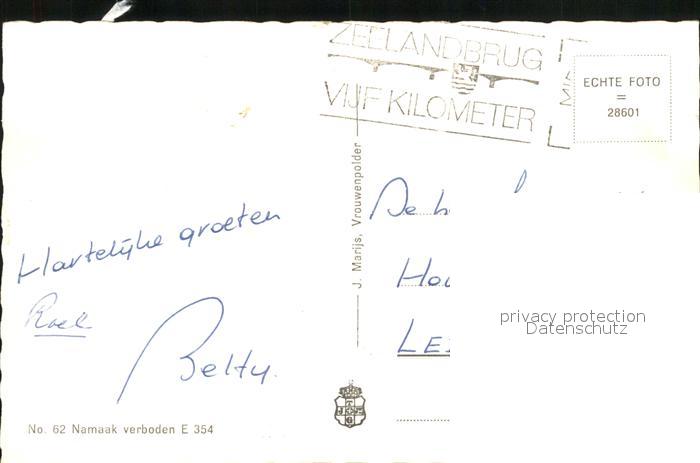 ZEELANDBRUG
VIJF KILOMETER
ECHTE FOTO
=
28601
J. Marijs, Vrouwenpolder
Hartelijke groeten
Roel
Betty.
De h
Hou
LE
privacy protection
Datenschutz
No. 62 Namaak verboden E 354